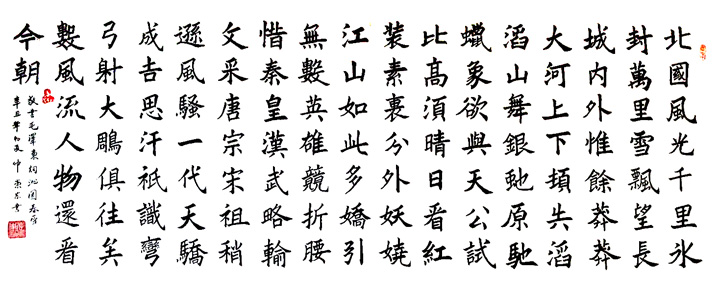 北國風光千里冰
封萬里雪飄望長
城内外惟餘莽莽
大河上下頓失滔
滔山舞銀虵原馳
蠟象欲與天公試
比高須晴日看紅
裝素裹分外妖嬈
江山如此多嬌引
無數英雄競折腰
惜秦皇漢武略輸
文采唐宗宋祖稍
遜風騷一代天驕
成吉思汗祇識彎
弓射大鵰俱往矣
數風流人物還看
今朝
敬書毛澤東詞沁園春雪
辛丑年